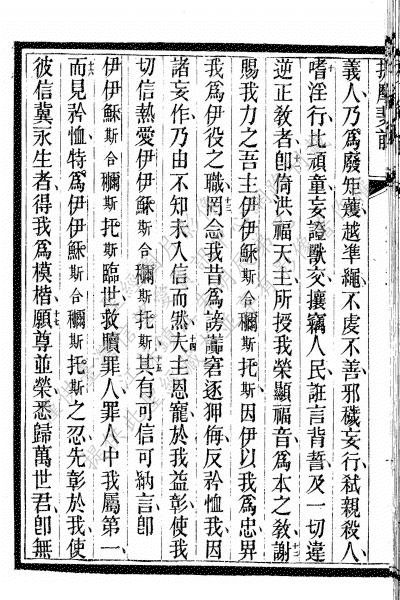 義人乃爲廢矩矱越準繩、不虔不善、邪穢妄行、弒親殺人、
十嗜淫行、比頑童、妄證、獸交、攘竊人民、誑言背誓、及一切違
逆正教者、十一卽倚洪福天主所授我榮顯福音爲本之教、十二謝
賜我力之吾主伊伊穌斯合穪斯托斯、因伊以我爲忠、畀
我爲伊役之職、十三罔念我昔爲謗讟窘逐狎侮、反矜恤我、因
諸妄作、乃由不知未入信而然、十四夫主恩寵於我益彰、使我
切信熱愛伊伊穌斯合穪斯托斯、十五其有可信可納言、卽
伊伊穌斯合穪斯托斯臨世救贖罪人、罪人中我屬第一、
十六而見矜恤、特爲伊伊穌斯合穪斯托斯之忍、先彰於我、使
彼信冀永生者、得我爲模楷、十七願尊並榮、悉歸萬世君、卽無